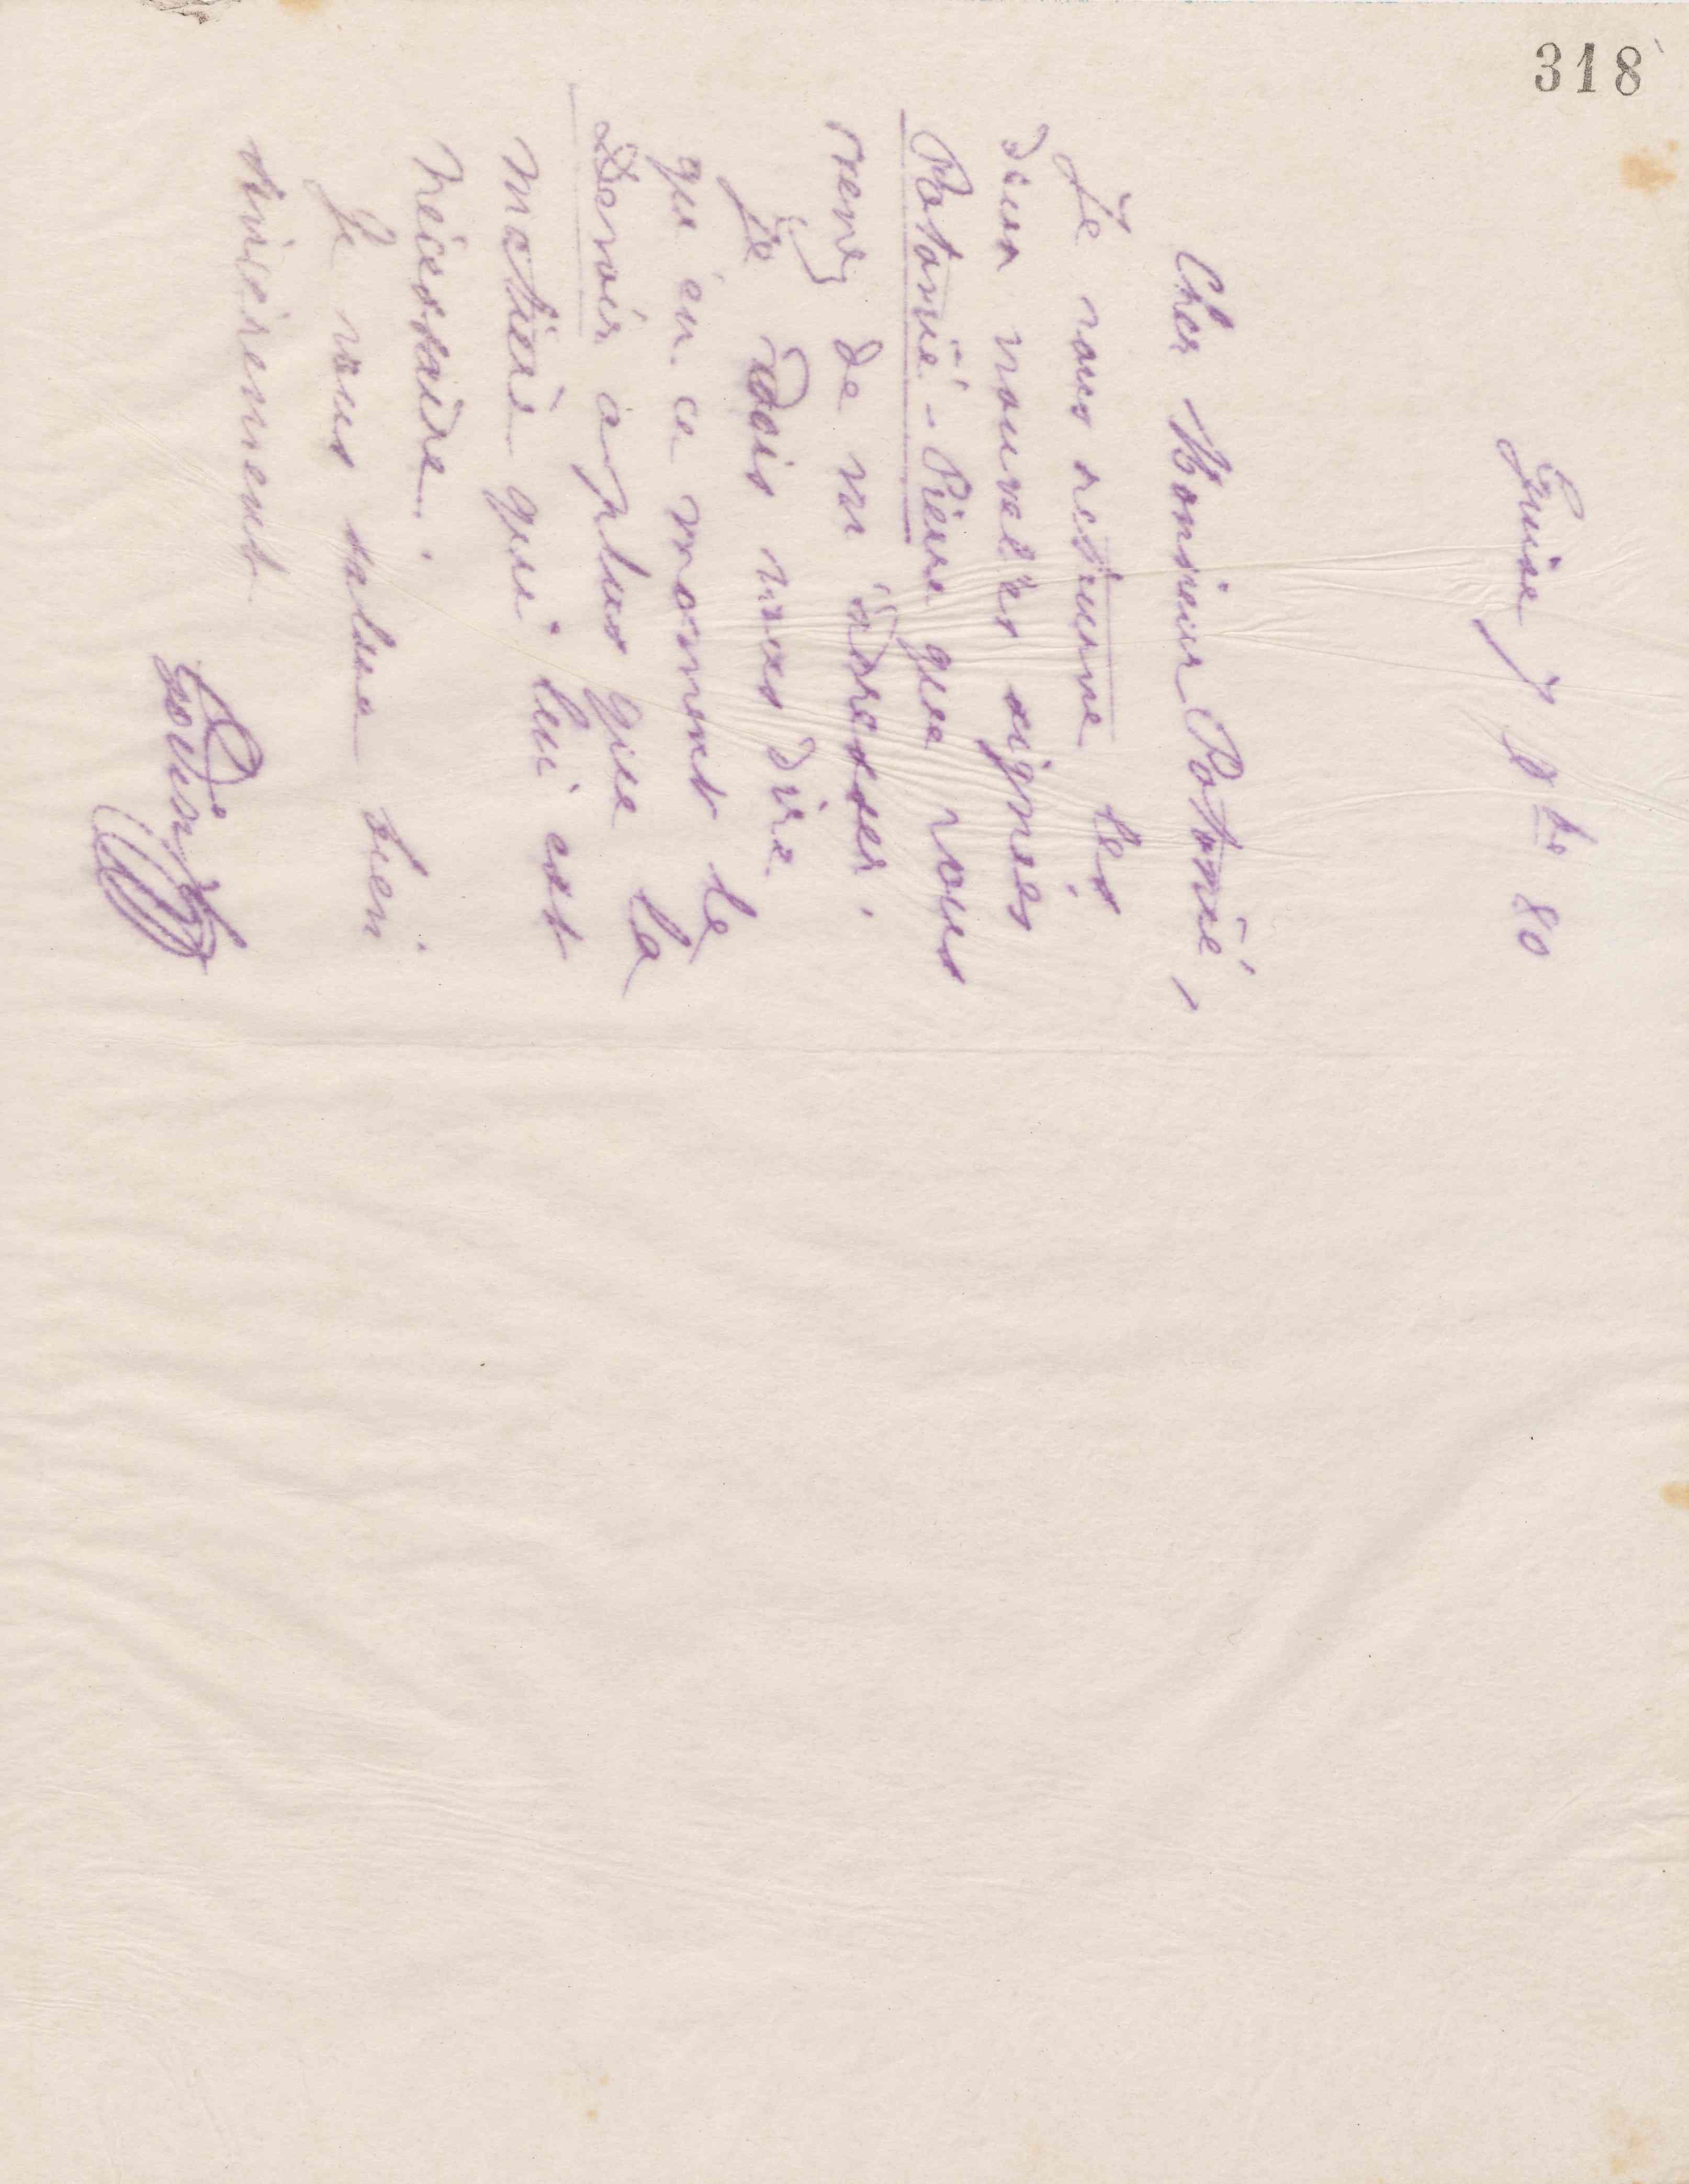 318
Guise 7 8bre 80
Cher Monsieur Potonié,
Je vous retourne les
deux nouvelles signées
Potonié-Pierre que vous
venez de m'adresser.
Je dois vous dire
qu'en ce moment le
Devoir a plus que la
matière qui lui est
nécessaire.
Je vous salue bien
sincèrement
Godin